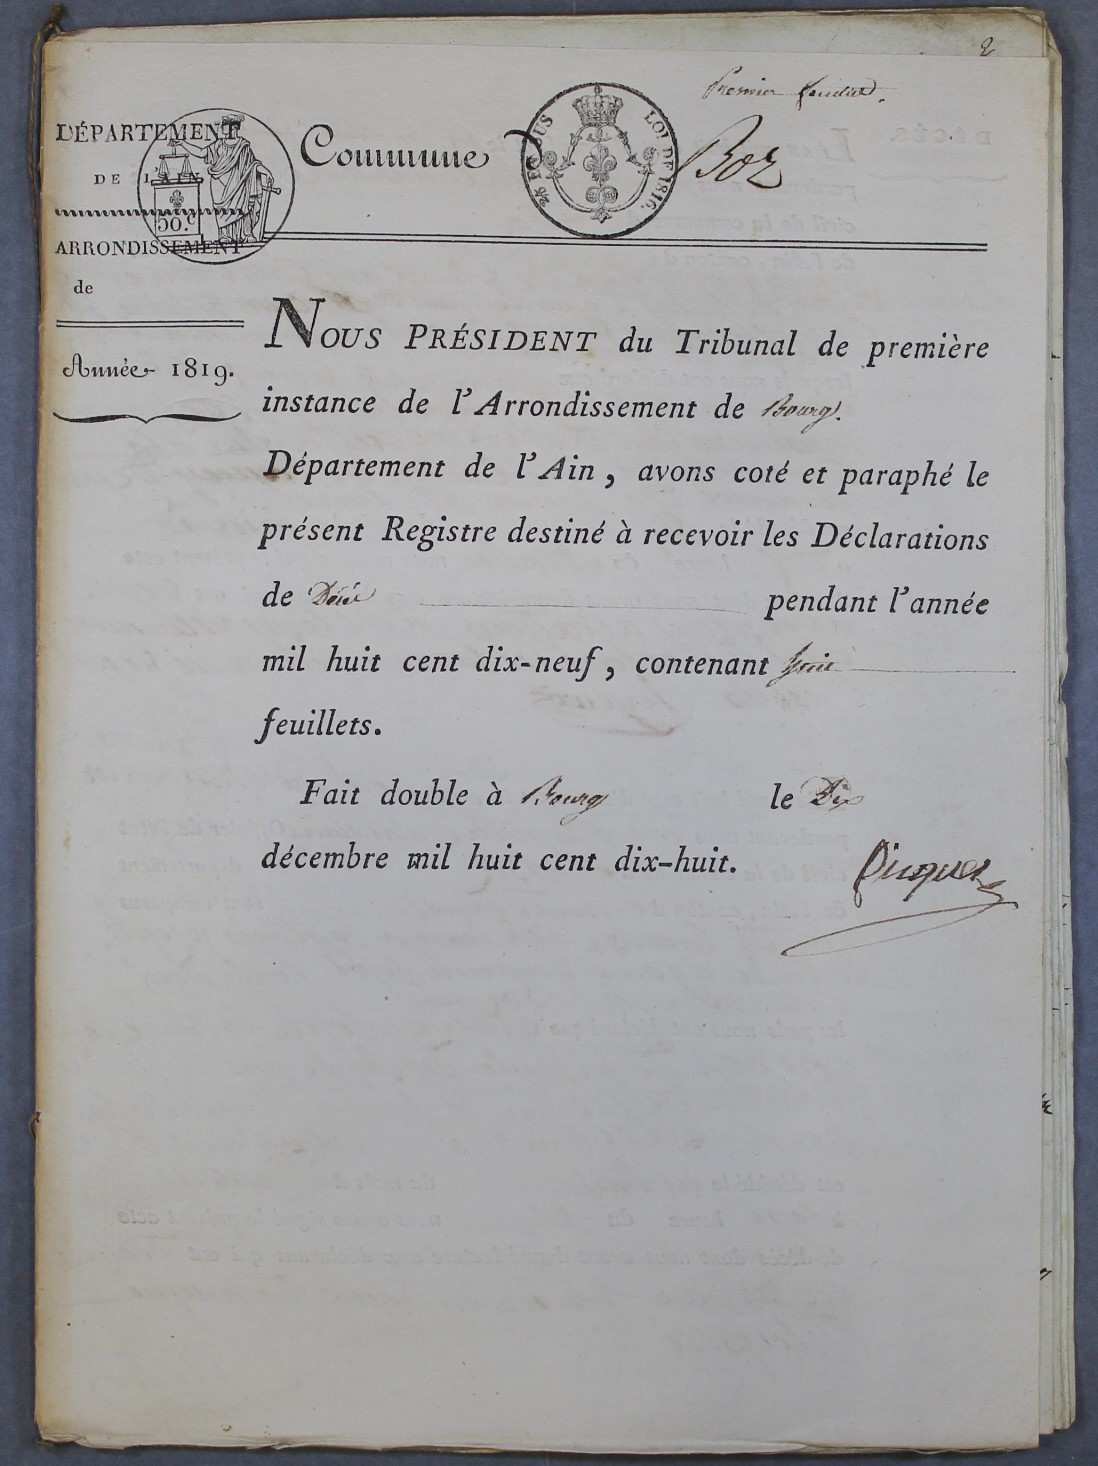 2
Premier feuillet.
DÉPARTEMENT
DE L'AIN
50.c
ARRONDISSEMENT
de
Année 1819.
Commune
EN SUS
LOI DE 1816.
Boz
NOUS PRÉSIDENT du Tribunal de première
instance de l'Arrondissement de Bourg.
Département de l'Ain, avons coté et paraphé le
présent Registre destiné à recevoir les Déclarations
de Décès pendant l'année
mil huit cent dix-neuf, contenant
feuillets.
Fait double à Bourg le Dix
décembre mil huit cent dix-huit.